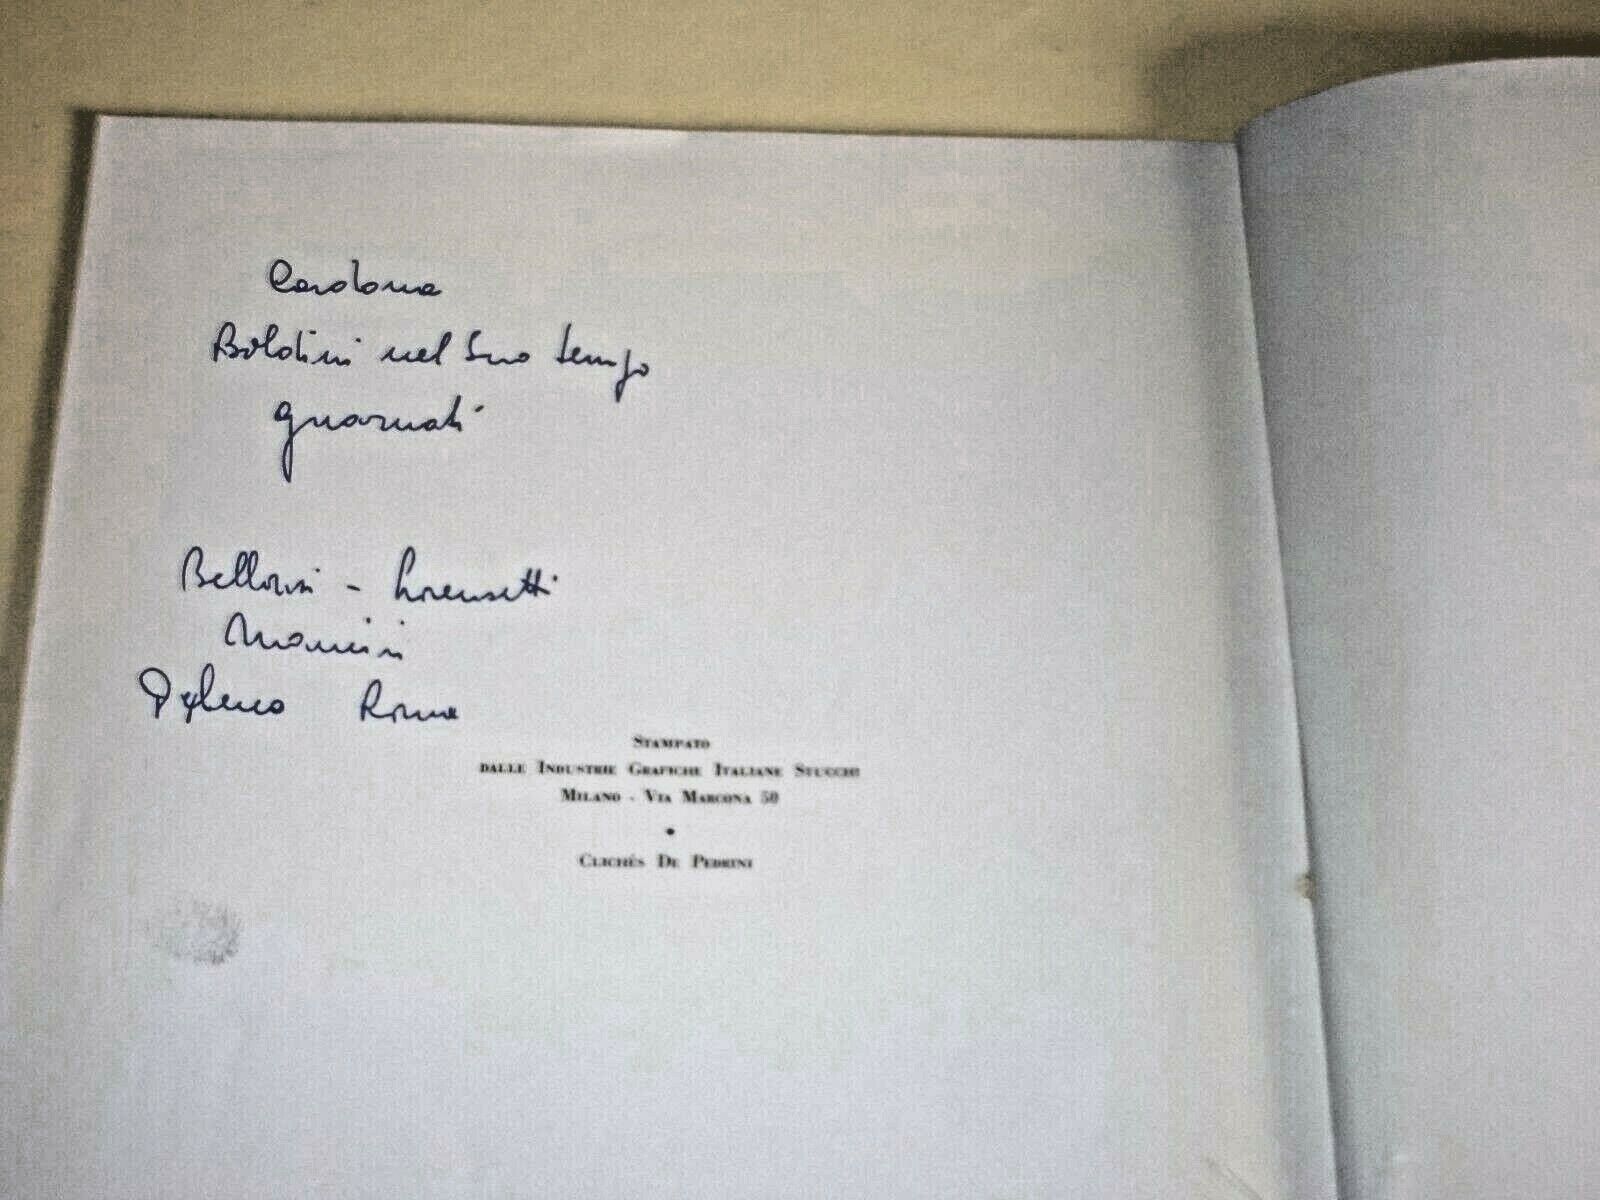 Cardona
Boldini nel suo tempo
Guarnati
Bellonzi - Lorenzetti
Mancini
Roma
STAMPATO
DALLE INDUSTRIE GRAFICHE ITALIANE STUCCHI
MILANO - VIA MARCONA 50
•
CLICHÉS DE PEDRINI